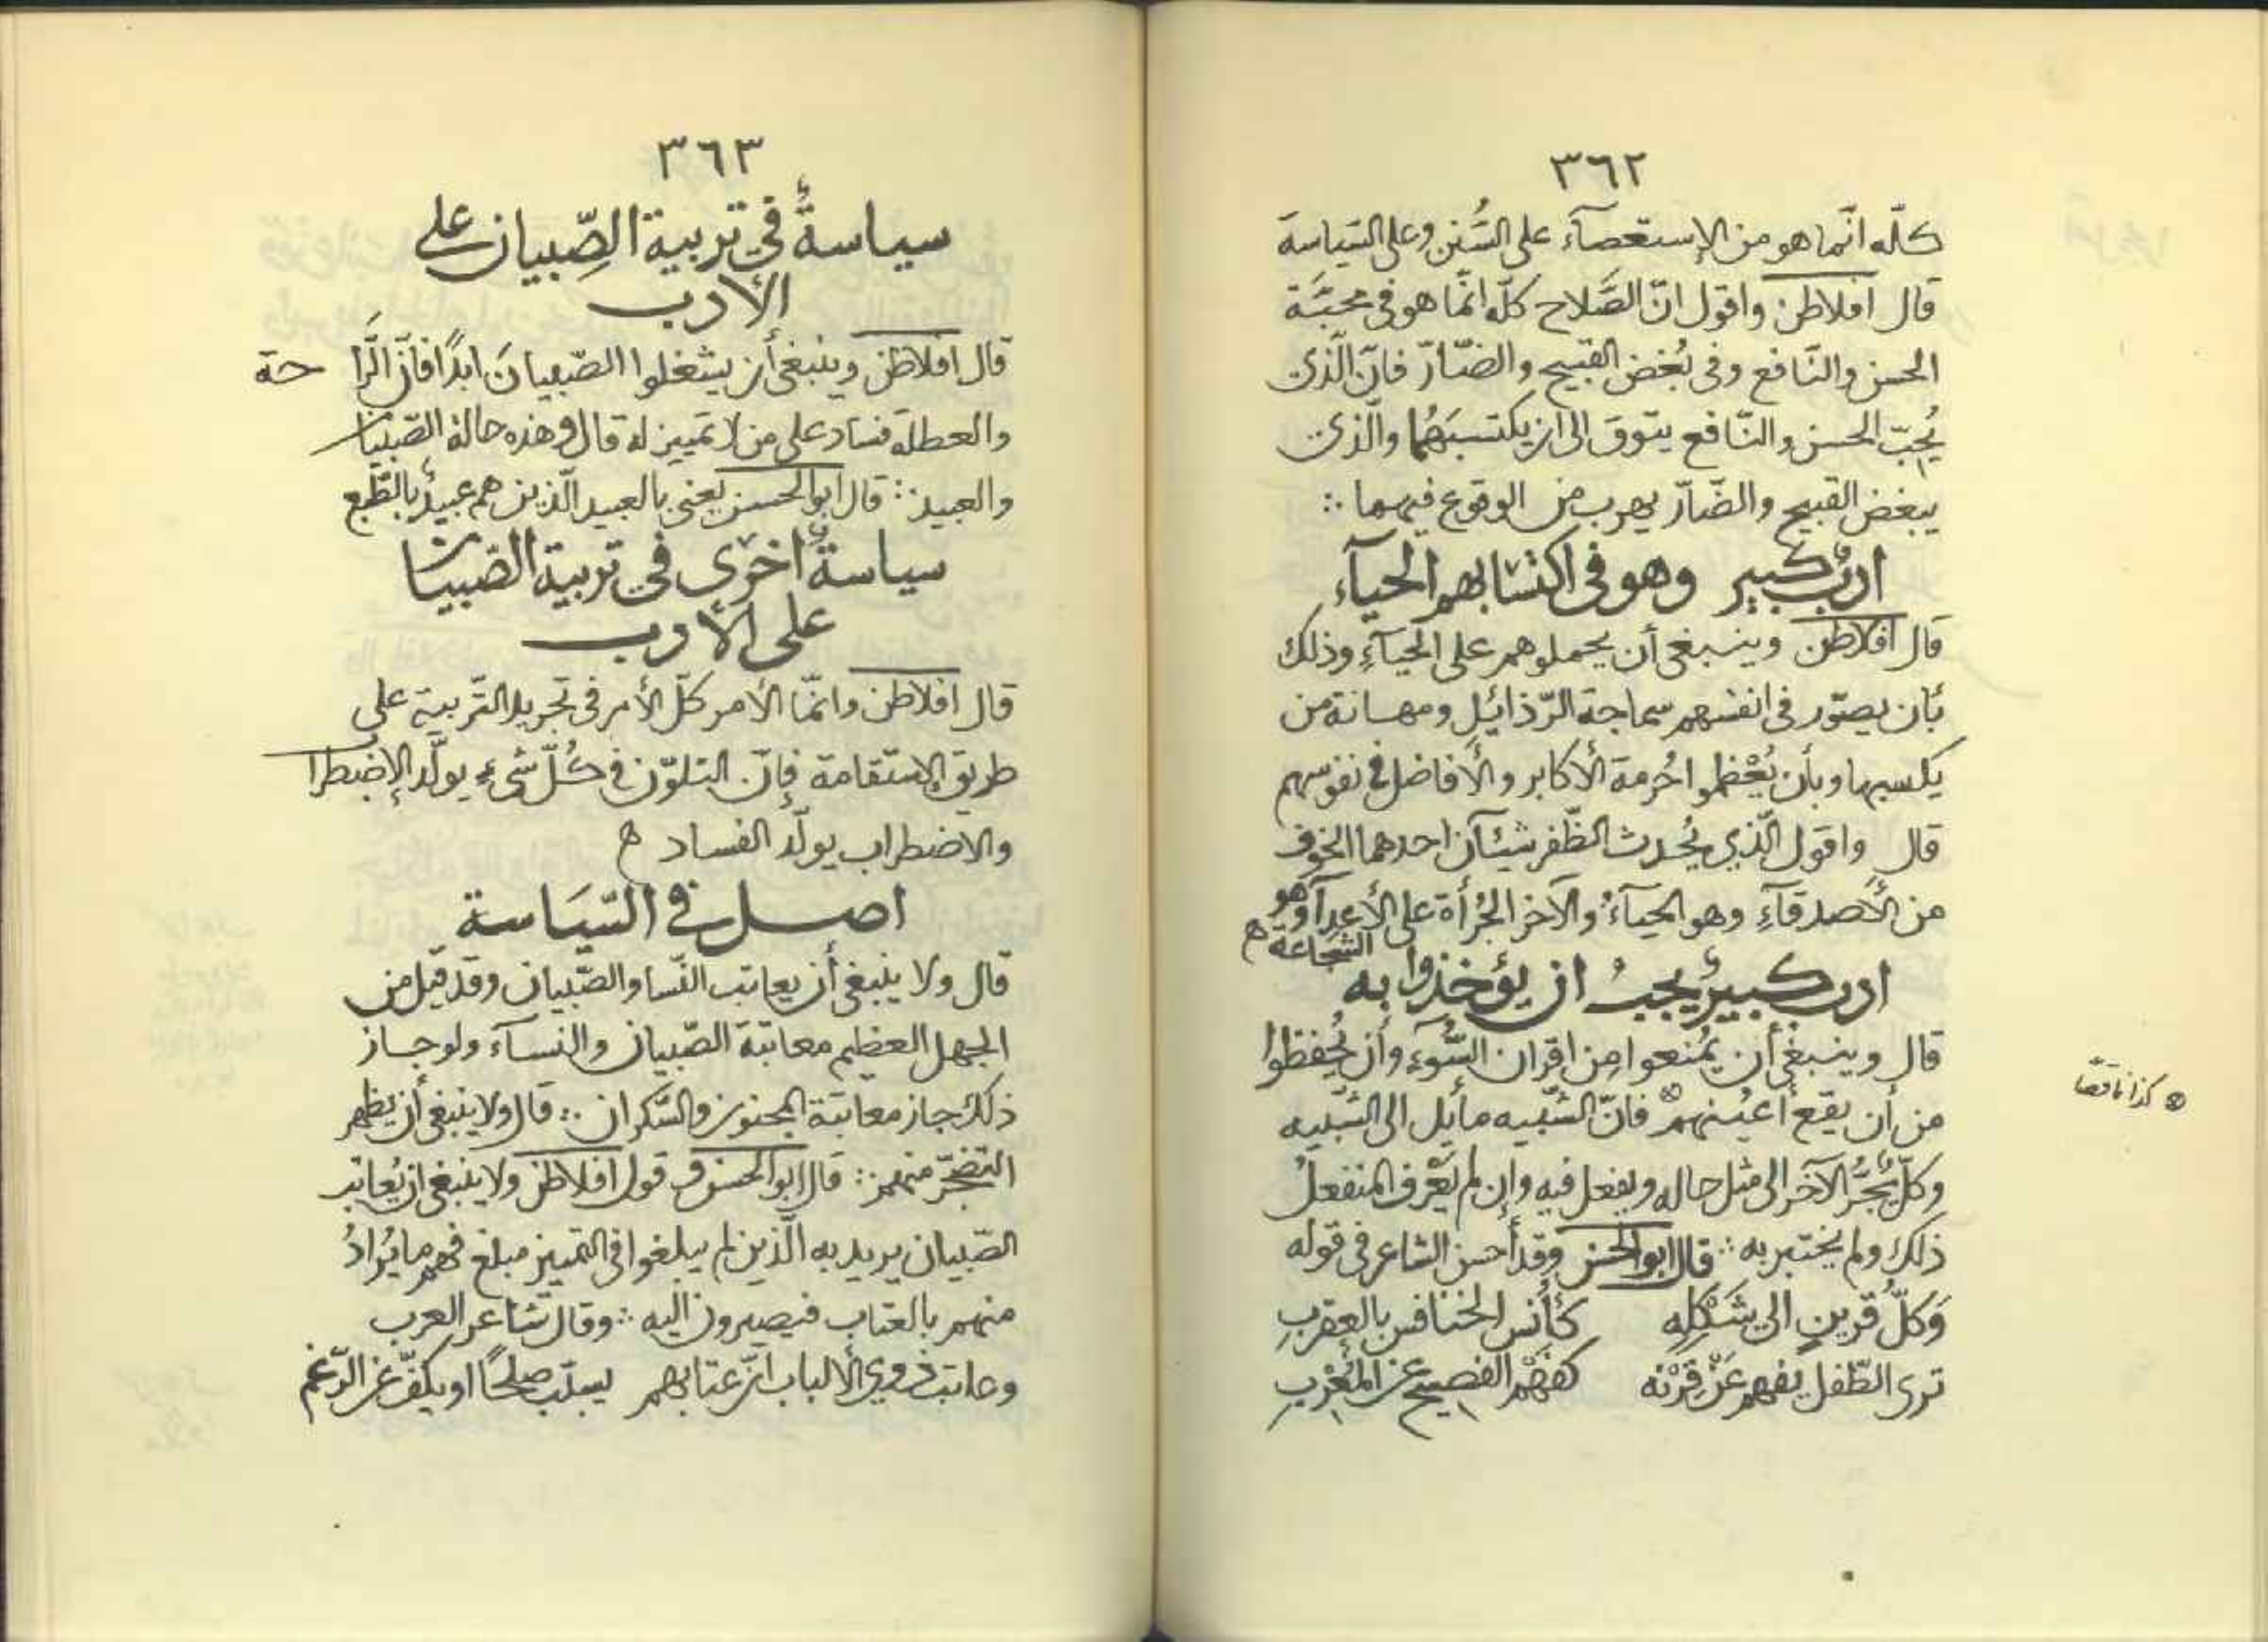 ٣٦٢
كلّه انّما هو من الإستعصآء على السُنن وعلى السّياسة
قال افلاطن واقول انّ الصَّلاح كلّه انّما هو فى محبَّة
الحسن والنّافع وفى بُغض القبيح والضّارّ فانّ الّذى
يُحِبّ الحسن والنّافع يتوق الى ان يكتسبَهُما والّذى
يبغض القبيح والضّارّ يهرب من الوقوع فيهما ∴
ادبٌ كبير وهو فى اكتسابهم الحيآء
قال افلاطن وينبغى أن يحملوهم على الحيآءِ وذلك
بأن يصوّر فى انفسهم سماجة الرّذائل ومهانة من
يكسبها وبأن يُعْظموا حُرمة الأكابر والأفاضل فى نفوسهم
قال واقول الّذي يُحدث الظّفر شيئآن احدهما الخوف
من الأصدقآءِ وهو الحيآءُ والآخر الجُرأة على الأعدآ وهو
الشجاعة ه
ادب كبيرٌ يجبُ ان يؤخذوا به
قال وينبغى أن يُمنعوا مِن اقران السُّوءِ وأن يُحفظوا
من أن يقع أعيُنهم ⊗ فانّ الشّبيه مايل الى الشّبيه
وكلٌّ يَجُرُّ الآخر الى مثل حاله ويفعل فيه وإن لم يَعْرف المنفعلُ
ذلك ولم يختبر به ∴ قال ابو الحسن وقد أحسن الشاعر فى قوله
وَكلُّ قرينٍ الى شَكْلِهِ كأُنس الخنافس بالعقربِ
ترى الطّفل يفهم عَنْ قِرْنه كفهْم الفصيح عن المُعْرِبِ
⊗ كذا ناقصًا
٣٦٣
سياسةٌ في تربية الصِّبيان على
الأدب
قال افلاطن وينبغى أن يشغلوا الصّبيانَ ابدًا فانّ الرَّا حة
والعطلة فساد على من لا تمييز له قال وهذه حالة الصّبيان
والعبيد ∴ قال ابو الحسن يعنى بالعبيد الّذين هم عبيدٌ بالطّبع
سياسةٌ اخرى في تربية الصّبيان
على الأدب
قال افلاطن وانّما الأمر كلّ الأمر فى تجريد التّربية على
طريق الإستقامة فإنّ التلوّن فى كُلّ شىءٍ يولّد الإضطرا
والاضطراب يولّد الفساد ه
اصل فى السّيَاسة
قال ولا ينبغى أن يعاتب النّسا والصّبيان وقد قيل من
الجهل العظيم معاتبة الصّبيان والنسآء ولو جاز
ذلك جاز معاتبة المجنون والسّكران ∴ قال ولا ينبغى أن يظهر
التضجّر منهم ∴ قال ابو الحسن وقول افلاطن ولا ينبغى ان يُعاتب
الصّبيان يريد به الّذين لم يبلغوا فى التمييز مبلغ فهم ما يُرادُ
منهم بالعتاب فيصيرون اليه ∴ وقال شاعر العرب
وعاتب ذوي الألباب انّ عتابهم يسبّب صلحًا او يكفّ عن الرّغم